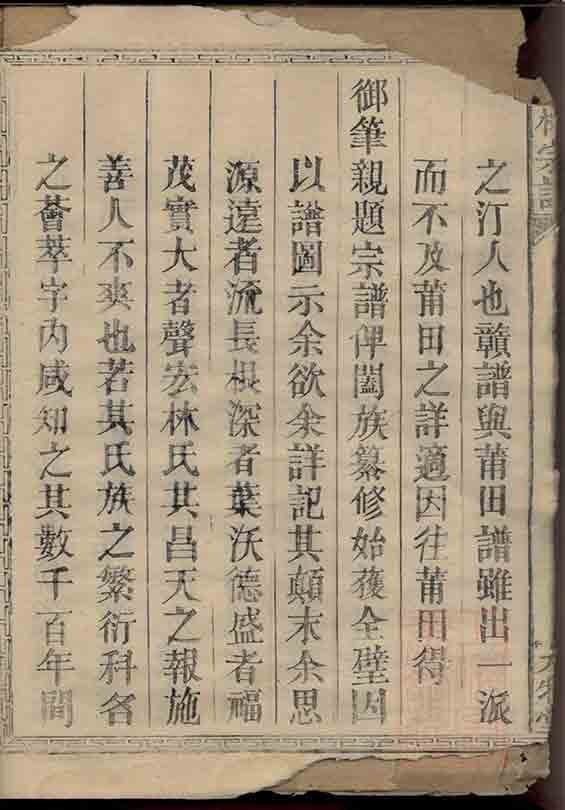 之汀人也贛譜與莆田譜雖出一派
而不及莆田之詳適因往莆田得
御筆親題宗譜俾闔族纂修始獲全璧因
以譜圖示余欲余詳記其顛末余思
源遠者流長根深者葉沃德盛者福
茂實大者聲宏林氏其昌天之報施
善人不爽也若其氏族之繁衍科名
之薈萃字內咸知之其數千百年間